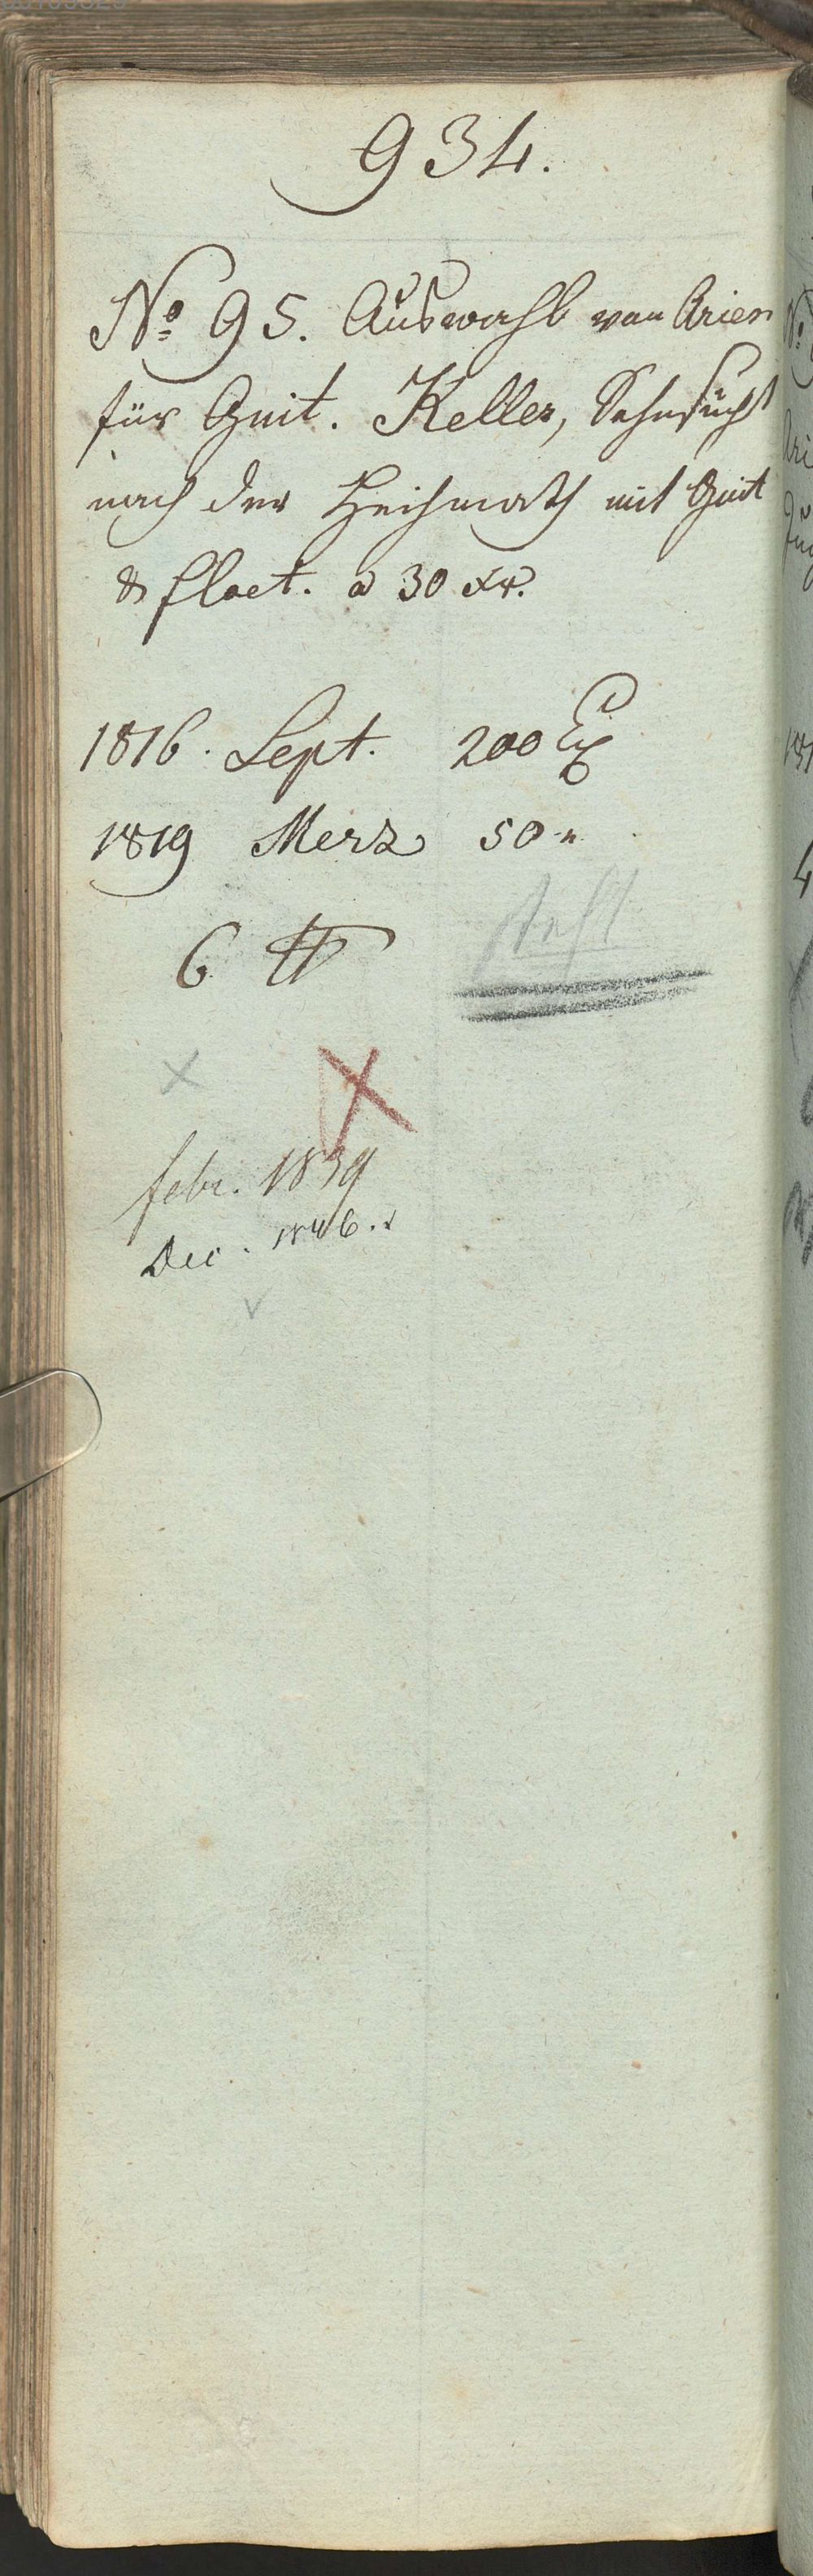 934.
No 95. Auswahl von Arien
für Guit. Keller, Sehnsucht
nach der Heihmath mit Guit
& flaet. a 30 xr.
1816. Sept. 200 Ex
1819 Merz 50 "
6 ℔
febr. 1839
Dec. 1846.